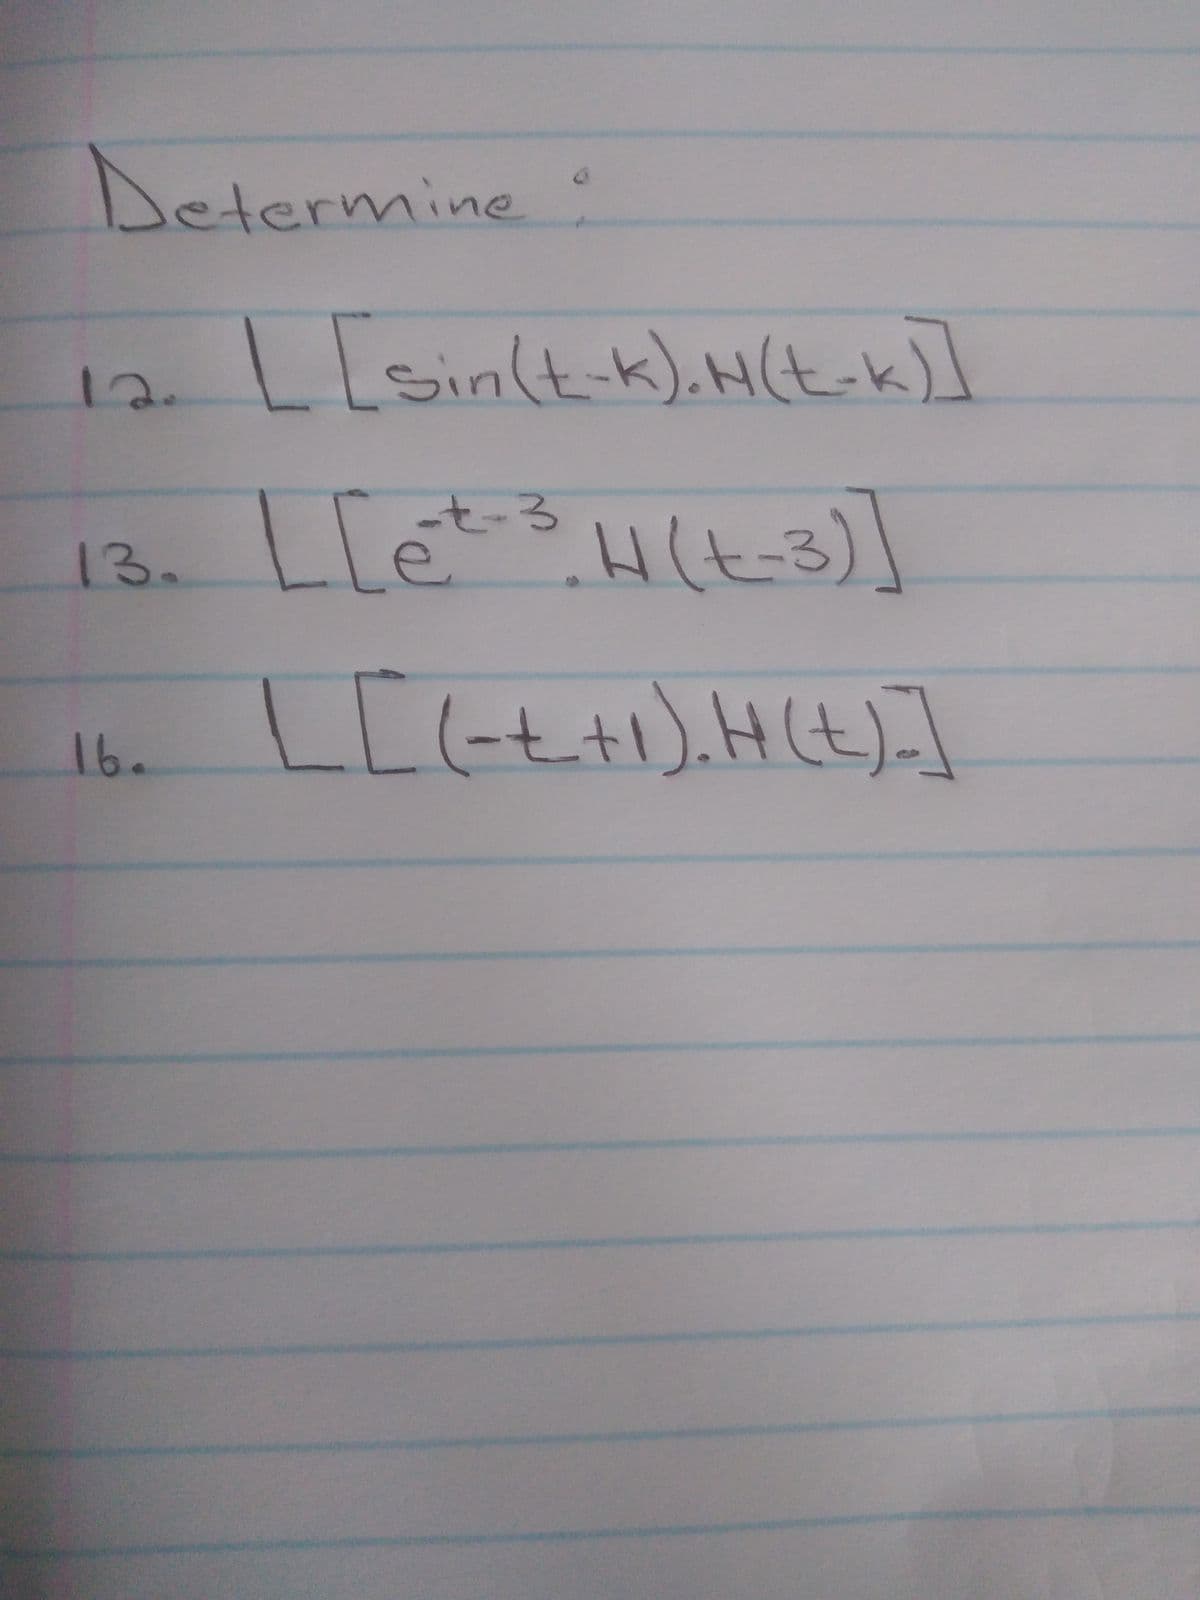 Determine :
12. L[sin(t-k).H(t-k)]
13. L[e^-t-3.H(t-3)]
16. L[(-t+1).H(t).]